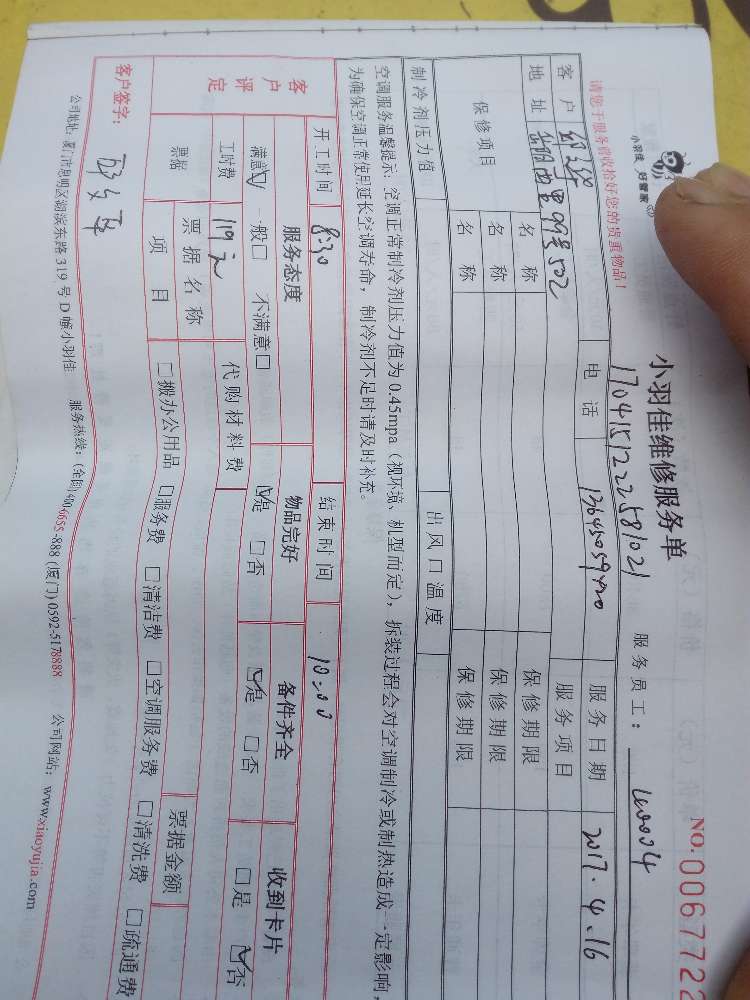 小羽佳 好管家
NO. 0067722
小羽佳维修服务单
1704151222581021
服务员工: W0004
请您于服务前收拾好您的贵重物品!
客户 电话 13645059420 服务日期 2017.4.16
地址 99号502 服务项目
保修项目 名称 保修期限
名称 保修期限
名称 保修期限
制冷剂压力值 出风口温度
空调服务温馨提示: 空调正常制冷剂压力值为0.45mpa (视环境、机型而定), 拆装过程会对空调制冷或制热造成一定影响,
为确保空调正常使用延长空调寿命, 制冷剂不足时请及时补充。
开工时间 8:30 结束时间 10:00
客户评定 服务态度 物品完好 备件齐全 收到卡片
满意☑ 一般□ 不满意□ ☑是 □否 ☑是 □否 □是 ☑否
工时费 119元 代购材料费
票据 票据名称 票据金额
项目 □搬办公用品 □服务费 □清洁费 □空调服务费 □清洗费 □疏通费
客户签字:
公司地址: 厦门市思明区湖滨东路319号D幢小羽佳 服务热线: (全国)400-6655-888 (厦门)0592-5178888 公司网站: www.xiaoyujia.com